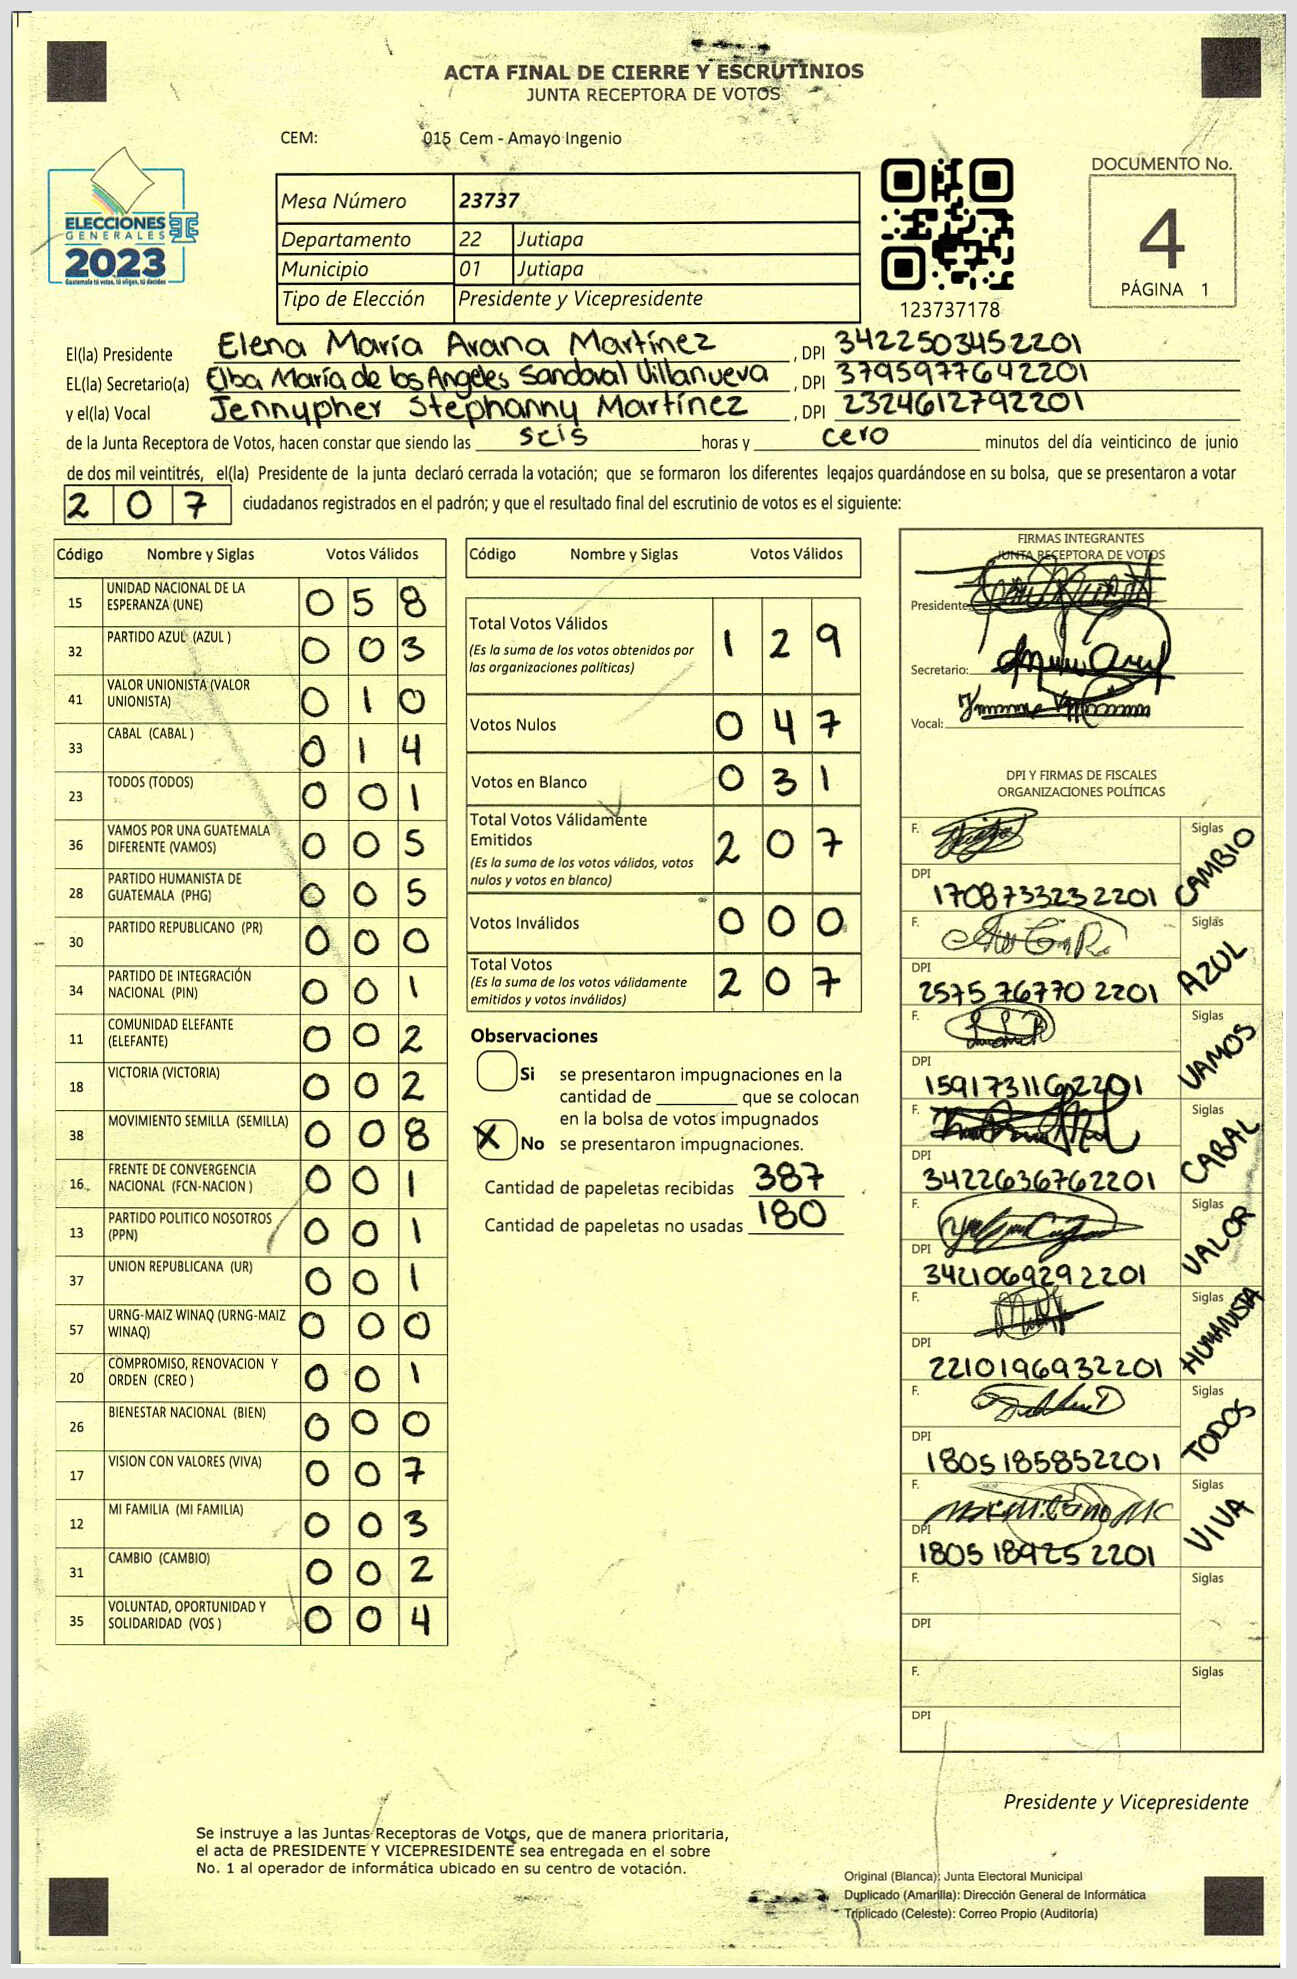 ACTA FINAL DE CIERRE Y ESCRUTINIOS
JUNTA RECEPTORA DE VOTOS
CEM: 015 Cem - Amayo Ingenio
ELECCIONES
GENERALES
2023
Guatemala tú votas, tú eliges, tú decides
Mesa Número 23737
Departamento 22 Jutiapa
Municipio 01 Jutiapa
Tipo de Elección Presidente y Vicepresidente
123737178
DOCUMENTO No.
4
PÁGINA 1
El(la) Presidente Elena María Arana Martínez, DPI 3422503452201
EL(la) Secretario(a) Elba María de los Angeles Sandoval Villanueva, DPI 3795977642201
y el(la) Vocal Jennypher Stephanny Martínez, DPI 2324612792201
de la Junta Receptora de Votos, hacen constar que siendo las seis horas y cero minutos del día veinticinco de junio
de dos mil veintitrés, el(la) Presidente de la junta declaró cerrada la votación; que se formaron los diferentes legajos guardándose en su bolsa, que se presentaron a votar
2 0 7 ciudadanos registrados en el padrón; y que el resultado final del escrutinio de votos es el siguiente:
Código Nombre y Siglas Votos Válidos
15 UNIDAD NACIONAL DE LA
ESPERANZA (UNE) 0 5 8
32 PARTIDO AZUL (AZUL ) 0 0 3
41 VALOR UNIONISTA (VALOR
UNIONISTA) 0 1 0
33 CABAL (CABAL ) 0 1 4
23 TODOS (TODOS) 0 0 1
36 VAMOS POR UNA GUATEMALA
DIFERENTE (VAMOS) 0 0 5
28 PARTIDO HUMANISTA DE
GUATEMALA (PHG) 0 0 5
30 PARTIDO REPUBLICANO (PR) 0 0 0
34 PARTIDO DE INTEGRACIÓN
NACIONAL (PIN) 0 0 1
11 COMUNIDAD ELEFANTE
(ELEFANTE) 0 0 2
18 VICTORIA (VICTORIA) 0 0 2
38 MOVIMIENTO SEMILLA (SEMILLA) 0 0 8
16 FRENTE DE CONVERGENCIA
NACIONAL (FCN-NACION ) 0 0 1
13 PARTIDO POLITICO NOSOTROS
(PPN) 0 0 1
37 UNION REPUBLICANA (UR) 0 0 1
57 URNG-MAIZ WINAQ (URNG-MAIZ
WINAQ) 0 0 0
20 COMPROMISO, RENOVACION Y
ORDEN (CREO ) 0 0 1
26 BIENESTAR NACIONAL (BIEN) 0 0 0
17 VISION CON VALORES (VIVA) 0 0 7
12 MI FAMILIA (MI FAMILIA) 0 0 3
31 CAMBIO (CAMBIO) 0 0 2
35 VOLUNTAD, OPORTUNIDAD Y
SOLIDARIDAD (VOS ) 0 0 4
Código Nombre y Siglas Votos Válidos
Total Votos Válidos 1 2 9
(Es la suma de los votos obtenidos por
las organizaciones políticas)
Votos Nulos 0 4 7
Votos en Blanco 0 3 1
Total Votos Válidamente
Emitidos 2 0 7
(Es la suma de los votos válidos, votos
nulos y votos en blanco)
Votos Inválidos 0 0 0
Total Votos 2 0 7
(Es la suma de los votos válidamente
emitidos y votos inválidos)
Observaciones
Si se presentaron impugnaciones en la
cantidad de que se colocan
en la bolsa de votos impugnados
X No se presentaron impugnaciones.
Cantidad de papeletas recibidas 387
Cantidad de papeletas no usadas 180
FIRMAS INTEGRANTES
JUNTA RECEPTORA DE VOTOS
Presidente
Secretario:
Vocal:
DPI Y FIRMAS DE FISCALES
ORGANIZACIONES POLÍTICAS
F. Siglas CAMBIO
DPI 1708733232201
F. Siglas AZUL
DPI 2575 76770 2201
F. Siglas VAMOS
DPI 1591731162201
F. Siglas CABAL
DPI 3422636762201
F. Siglas VALOR
DPI 3421069292201
F. Siglas HUMANISTA
DPI 2210196932201
F. Siglas TODOS
DPI 1805185852201
F. Siglas VIVA
DPI 1805 18925 2201
F. Siglas
DPI
F. Siglas
DPI
Presidente y Vicepresidente
Se instruye a las Juntas Receptoras de Votos, que de manera prioritaria,
el acta de PRESIDENTE Y VICEPRESIDENTE sea entregada en el sobre
No. 1 al operador de informática ubicado en su centro de votación.
Original (Blanca): Junta Electoral Municipal
Duplicado (Amarilla): Dirección General de Informática
Triplicado (Celeste): Correo Propio (Auditoría)